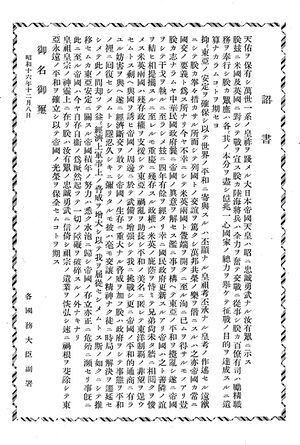 詔書
天佑ヲ保有シ萬世一系ノ皇祚ヲ踐メル大日本帝國天皇ハ昭ニ忠誠勇武ナル汝有衆ニ示ス
朕茲ニ米國及英國ニ對シテ戰ヲ宣ス朕カ陸海將兵ハ全力ヲ奮テ交戰ニ從事シ朕カ百僚有司ハ勵精職
務ヲ奉行シ朕カ衆庶ハ各々其ノ本分ヲ盡シ億兆一心國家ノ總力ヲ擧ケテ征戰ノ目的ヲ達成スルニ遺
算ナカラムコトヲ期セヨ
抑々東亞ノ安定ヲ確保シ以テ世界ノ平和ニ寄與スルハ丕顯ナル皇祖考丕承ナル皇考ノ作述セル遠猷
ニシテ朕カ拳々措カサル所而シテ列國トノ交誼ヲ篤クシ萬邦共榮ノ樂ヲ偕ニスルハ之亦帝國カ常ニ
國交ノ要義ト爲ス所ナリ今ヤ不幸ニシテ米英兩國ト釁端ヲ開クニ至ル洵ニ已ムヲ得サルモノアリ豈
朕カ志ナラムヤ中華民國政府曩ニ帝國ノ眞意ヲ解セス濫ニ事ヲ構ヘテ東亞ノ平和ヲ攪亂シ遂ニ帝國
ヲシテ干戈ヲ執ルニ至ラシメ茲ニ四年有餘ヲ經タリ幸ニ國民政府更新スルアリ帝國ハ之ト善隣ノ誼
ヲ結ヒ相提攜スルニ至レルモ重慶ニ殘存スル政權ハ米英ノ庇蔭ヲ恃ミテ兄弟尚未タ牆ニ相鬩クヲ悛
メス米英兩國ハ殘存政權ヲ支援シテ東亞ノ禍亂ヲ助長シ平和ノ美名ニ匿レテ東洋制覇ノ非望ヲ逞ウ
セムトス剩ヘ與國ヲ誘ヒ帝國ノ周邊ニ於テ武備ヲ增強シテ我ニ挑戰シ更ニ帝國ノ平和的通商ニ有ラ
ユル妨害ヲ與ヘ遂ニ經濟斷交ヲ敢テシ帝國ノ生存ニ重大ナル脅威ヲ加フ朕ハ政府ヲシテ事態ヲ平和
ノ裡ニ囘復セシメムトシ隱忍久シキニ彌リタルモ彼ハ毫モ交讓ノ精神ナク徒ニ時局ノ解決ヲ遷延セ
シメテ此ノ間却ツテ益々經濟上軍事上ノ脅威ヲ增大シ以テ我ヲ屈從セシメムトス斯ノ如クニシテ推
移セムカ東亞安定ニ關スル帝國積年ノ努力ハ悉ク水泡ニ歸シ帝國ノ存立亦正ニ危殆ニ瀕セリ事旣ニ
此ニ至ル帝國ハ今ヤ自存自衞ノ爲蹶然起ツテ一切ノ障礙ヲ破碎スルノ外ナキナリ
皇祖皇宗ノ神靈上ニ在リ朕ハ汝有衆ノ忠誠勇武ニ信倚シ祖宗ノ遺業ヲ恢弘シ速ニ禍根ヲ芟除シテ東
亞永遠ノ平和ヲ確立シ以テ帝國ノ光榮ヲ保全セムコトヲ期ス
御名御璽
昭和十六年十二月八日
各國務大臣副署